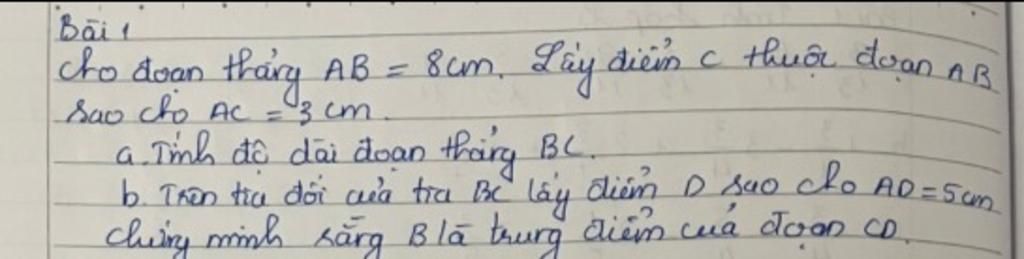 Bài 1
Cho đoạn thẳng AB = 8cm. Lấy điểm C thuộc đoạn AB
sao cho AC = 3 cm.
a. Tính độ dài đoạn thẳng BC.
b. Trên tia đối của tia BC lấy điểm D sao cho AD = 5cm
chứng minh rằng B là trung điểm của đoạn CD.